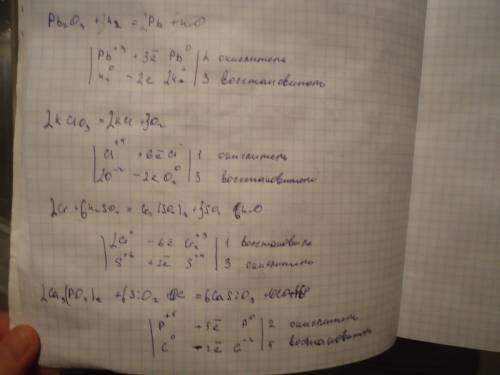 Pb₂O₃ + 3H₂ = 2Pb + H₂O
Pb⁺³ + 3ē Pb⁰ | 2 окислитель
H₂⁰ - 2e 2H⁺ | 3 восстановитель
2KClO₃ = 2KCl + 3O₂
Cl⁺⁵ + 6ē Cl⁻ | 1 окислитель
2O⁻² - 2ē O₂⁰ | 3 восстановитель
2Cr + 6H₂SO₄ = Cr₂(SO₄)₃ + 3SO₂ 6H₂O
2Cr⁰ - 6ē Cr₂⁺³ | 1 восстановитель
S⁺⁶ + 2ē S⁺⁴ | 3 окислитель
2Ca₃(PO₄)₂ + 6SiO₂ + 10C = 6CaSiO₃ +
P⁺⁵ - 5ē P⁰ | 2 окислитель
C⁰ - 2ē C⁺² восстановитель